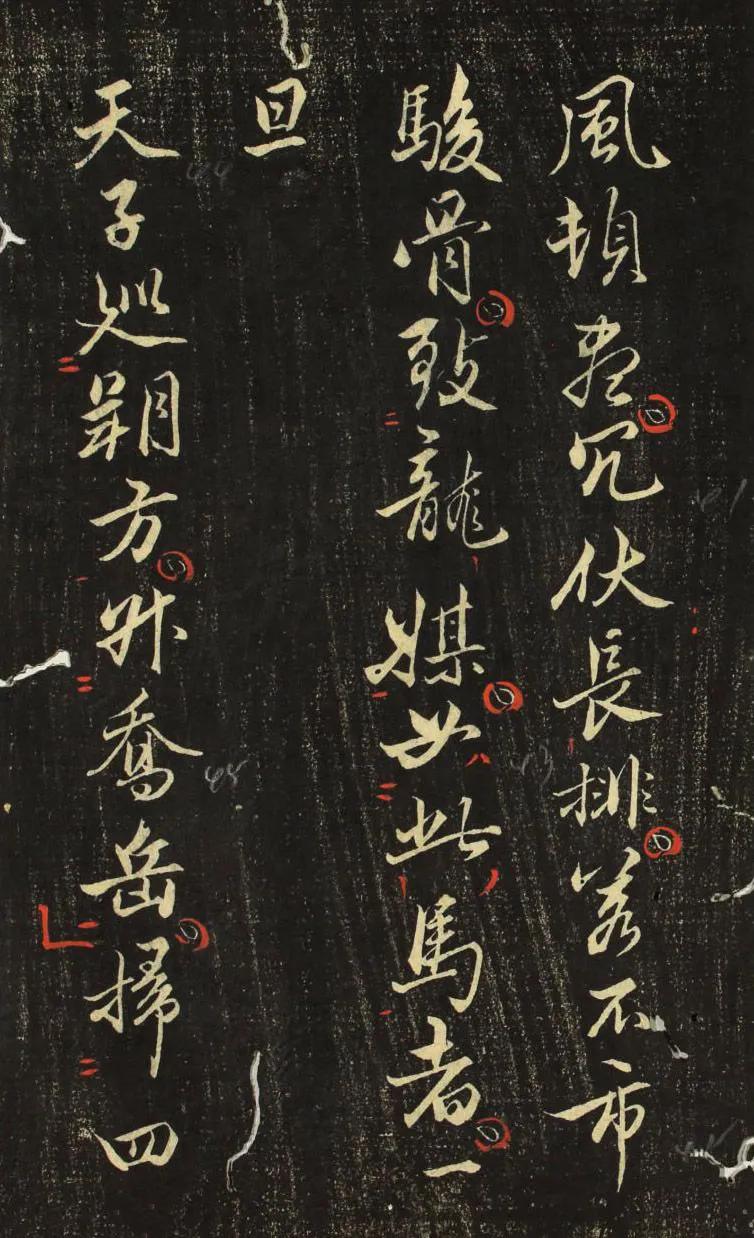 風頓盡冗伏長排若不市
駿骨致龍媒如此馬者一
旦
天子巡朔方升喬岳掃四